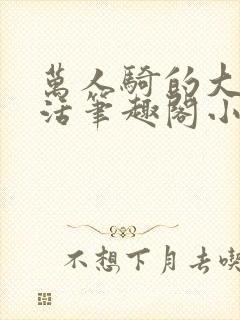 萬人騎的大
活筆趣閣小
不想下月去喫